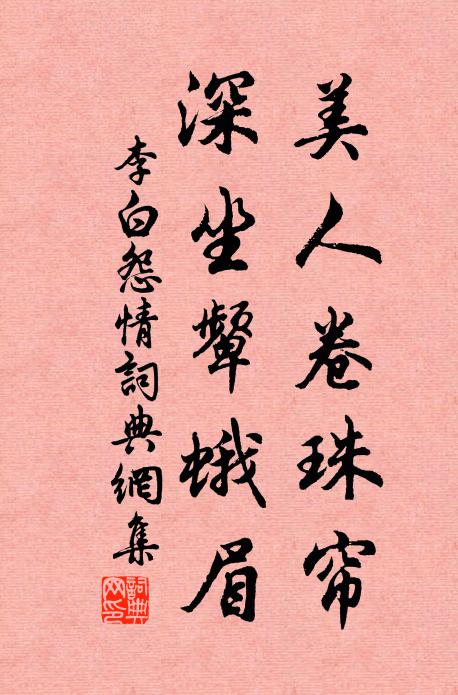 美人卷珠帘
深坐顰蛾眉
李白怨情詞典網集
詞典网印